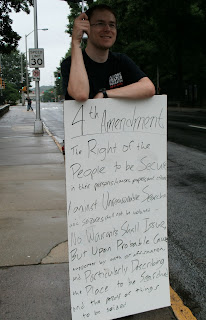 SPEED
LIMIT
30
4th Amendment
The Right of the
People to be Secure
in their persons houses papers and effects
against Unreasonable Searches
and seizures shall not be violated
No Warrants Shall Issue,
But Upon Probable Cause
supported by oath or affirmation
and Particularly Describing
the Place to be Searched
and the persons or things
to be seized